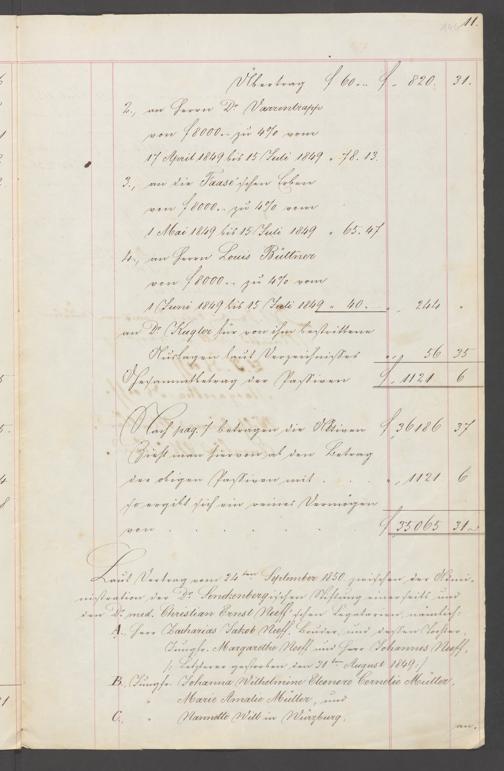 11.
Übertrag f 60 „ – f „ 820. 31.
2., an Herrn Dr. Varrentrapp
von f 8000. – zu 4% vom
17 April 1849 bis 15 Juli 1849 „ 78. 13.
3., an die Faase'schen Erben
von f 8000. – zu 4% vom
1 Mai 1849 bis 15 Juli 1849 „ 65. 47
4., an Herrn Louis Büttner
von f 8000. – zu 4% vom
1 Juni 1849 bis 15 Juli 1849 „ 40. – „ „ 244 „
an Dr. Kugler für von ihm bestrittene
Auslagen laut Verzeichnisses „ „ 56 35
Gesammtbetrag der Passiven f „ 1121 6
Nach pag. 7 betragen die Activen f 36186 37
Zieht man hiervon ab den Betrag
der obigen Passiven mit . . . „ „ 1121 6
so ergibt sich ein reines Vermögen
von . . . . . . f 35065 31
Laut Vertrag vom 24ten September 1850 zwischen der Admi-
nistration der Dr. Senckenbergischen Stiftung einerseits und
den Dr. med. Christian Ernst Neeff'schen Legatarien, nämlich:
A. Herr Zacharias Jakob Neeff, Bruder, und dessen Tochter,
Jungfr. Margarethe Neeff und Herr Johannes Neeff,
/: Letzterer gestorben den 21ten August 1849 :/
B. Jungfr. Johanna Wilhelmine Eleonore Cornelie Müller,
Marie Amalie Müller, und
C. „ Nannette Will in Würzburg.
an.